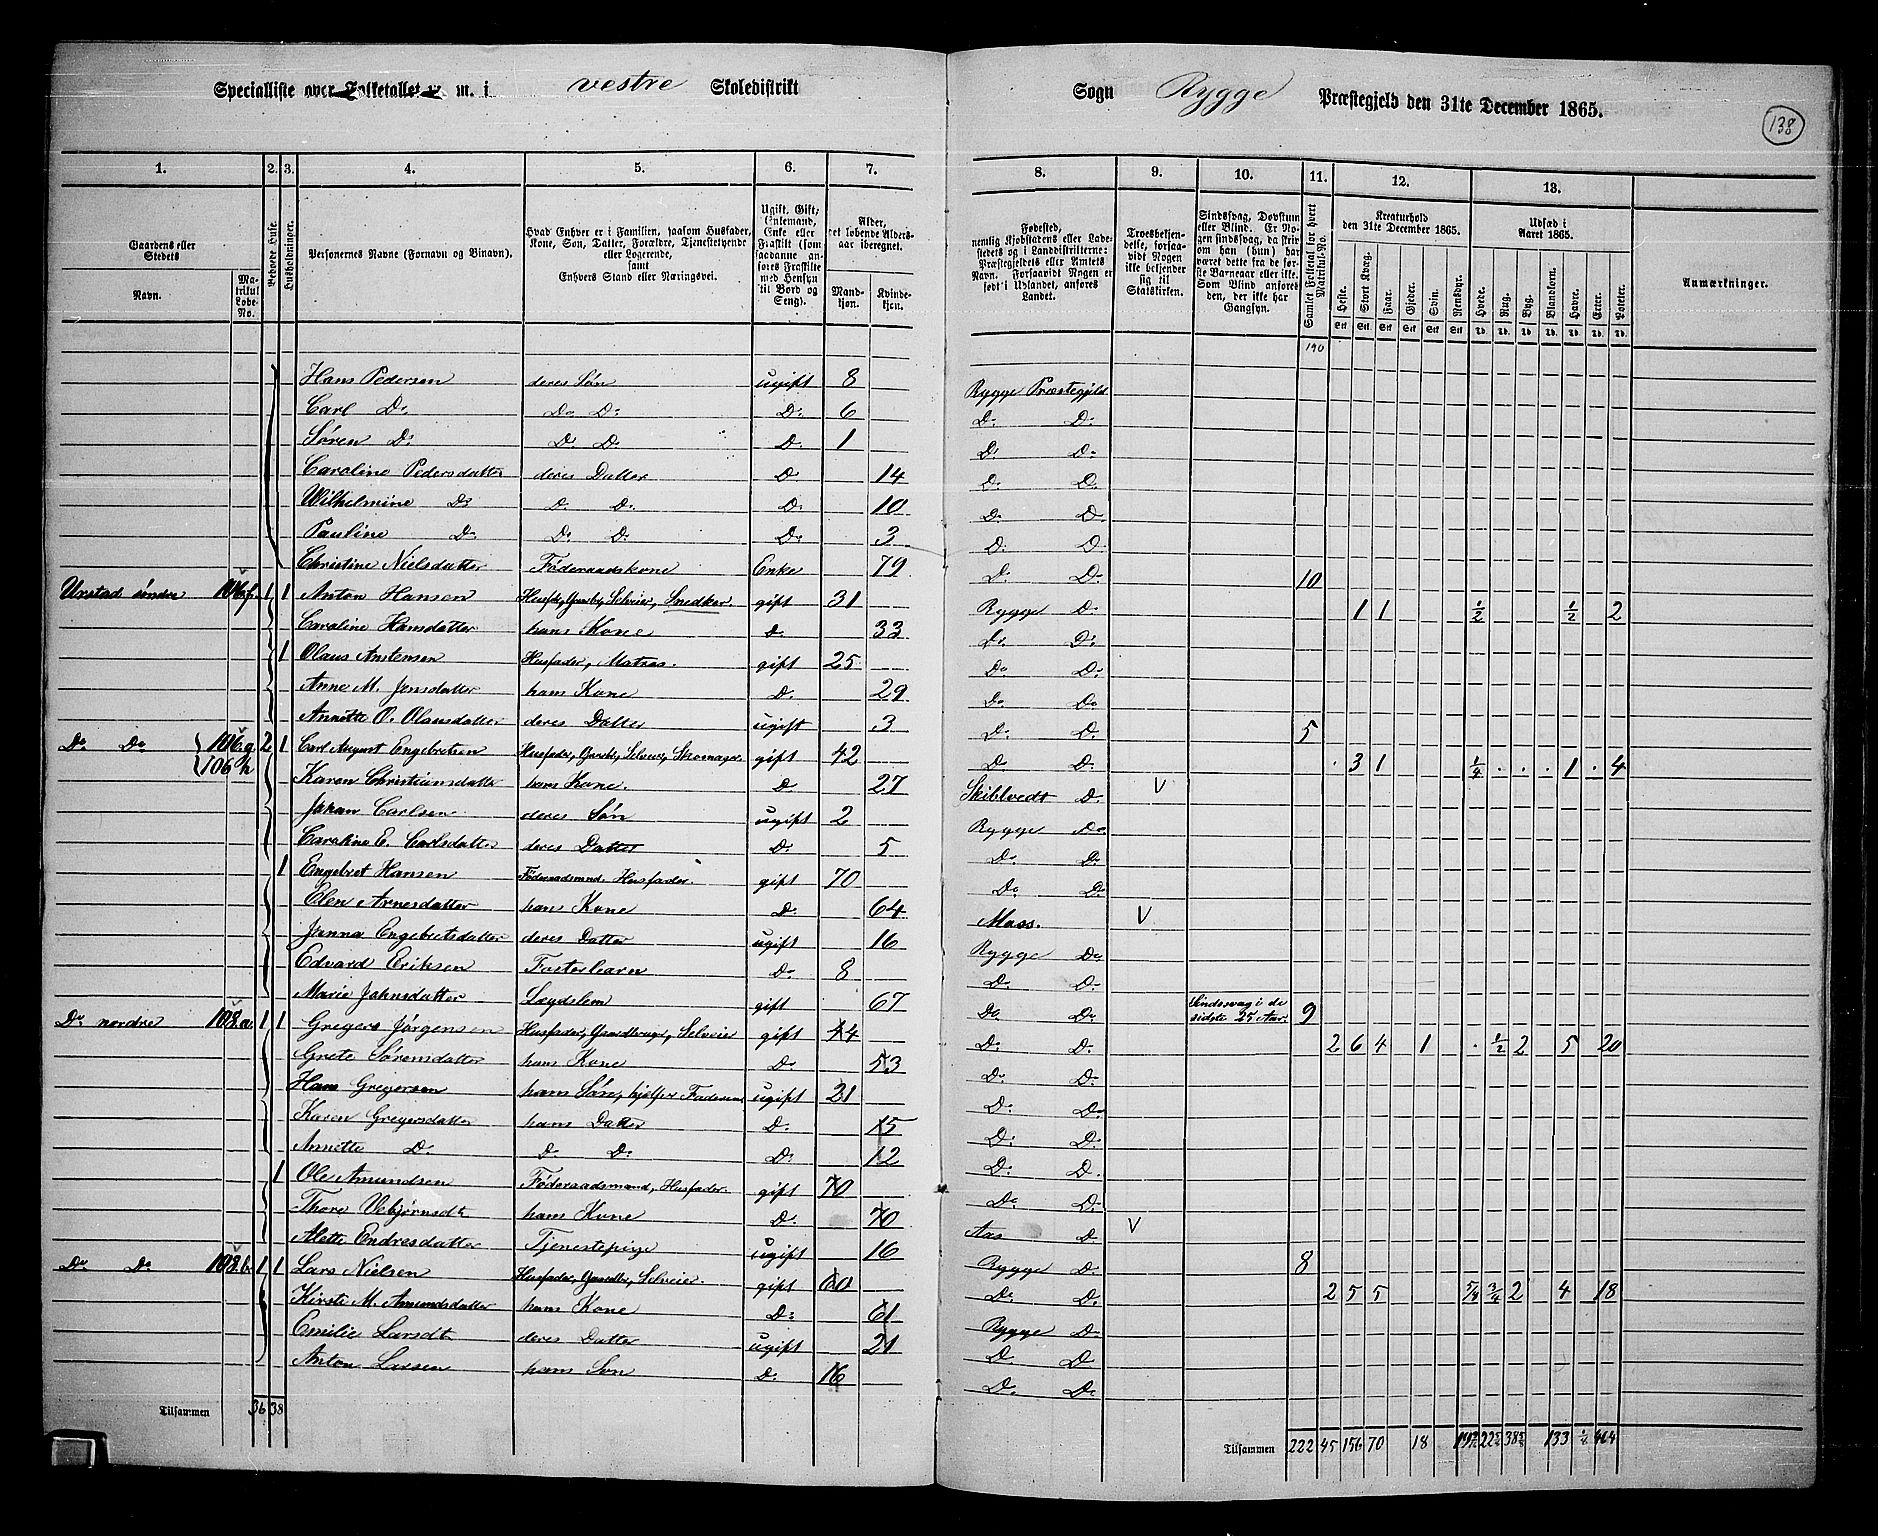 Specialliste over Folketallet m. m. i vestre Skoledistrikt
Sogn Rygge Præstegjeld den 31te December 1865.
138
1. 2. 3. 4. 5. 6. 7. 8. 9. 10. 11. 12. 13.
Gaardens eller Stedets
Navn.
Matrikul Løbe-No.
Beboede Huse.
Husholdninger.
Personernes Navne (Fornavn og Binavn).
Hvad Enhver er i Familien, saasom Husfader, Kone, Søn, Datter, Forældre, Tjenestetyende eller Logerende, samt Enhvers Stand eller Næringsvei.
Ugift, Gift, Enkemand, Enke eller Fraskilt (som saadanne anføres Fraskilte med Hensyn til Bord og Seng).
Alder, det løbende Alders-aar iberegnet.
Mand-kjøn. Kvinde-kjøn.
Fødested, nemlig Kjøbstadens eller Ladestedets og i Landdistrikterne: Præstegjeldets eller Amtets Navn. Forsaavidt Nogen er født i Udlandet, anføres Landet.
Troesbekjendelse, forsaavidt Nogen ikke bekjender sig til Statskirken.
Sindssvag, Døvstum eller Blind. Er Nogen sindssvag, da skriv om han (hun) har været dette fra de første Barneaar eller ikke. Som Blind anføres den, der ikke har Gangsyn.
Samlet Folketal for hvert Matrikul-No.
Kreaturhold den 31te December 1865.
Heste. Stort Kvæg. Faar. Gjeder. Svin. Rensdyr.
Udsæd i Aaret 1865.
Hvede. Rug. Byg. Blandkorn. Havre. Erter. Poteter.
Anmærkninger.
190
Hans Pedersen deres Søn ugift 8 Rygge Præstegjeld
Carl Do Do Do Do 6 Do Do
Søren Do Do Do Do 1 Do Do
Caroline Pedersdatter deres Datter Do 14 Do Do
Wilhelmine Do Do Do Do 10 Do Do
Pauline Do Do Do Do 3 Do Do
Christine Nielsdatter Føderaadskone Enke 79 Do Do 10
Urstad søndre 106 f. 1 1 Anton Hansen Husfdr, Grdbr, Selveier, Snedker gift 31 Rygge Do 1 1 1/2 1/2 2
Caroline Hansdatter hans Kone Do 33 Do Do
1 Olaus Anstensen Husfader, Matros. gift 25 Do Do
Anne M. Jensdatter hans Kone Do 29 Do Do
Annette O. Olausdatter deres Datter ugift 3 Do Do 5
Do Do 106 g 2 1 Carl August Engebretsen Husfader, Gaardb, Selveier, Skomager gift 42 Do Do 3 1 1/4 1 4
106 h Karen Christiansdatter hans Kone. Do 27 Skiblvedt Do V
Johan Carlsen deres Søn ugift 2 Rygge Do
Caroline E. Carlsdatter deres Datter Do 5 Do Do
1 Engebret Hansen Føderaadsmand, Husfader. gift 70 Do Do
Elen Arnesdatter hans Kone Do 64 Moss. V
Janna Engebretsdatter deres Datter ugift 16 Rygge Do
Edvard Eriksen Fosterbarn Do 8 Do Do
Marie Johnsdatter Lægdslem gift 67 Do Do Sindssvag i de sidste 25 Aar. 9
Do nordre 108 a 1 1 Gregers Jørgensen Husfader, Gaardbruger, Selveier gift 44 Do Do 2 6 4 1 1/2 2 5 20
Grete Sørensdatter hans Kone Do 53 Do Do
Hans Gregersen hans Søn, hjelper Faderen ugift 21 Do Do
Karen Gregersdatter hans Datter Do 15 Do Do
Annette Do Do Do Do 12 Do Do
1 Ole Amundsen Føderaadsmand, Husfader. gift 70 Do Do
Thore Vebjørnsdt hans Kone Do 70 Aas Do V
Alette Endresdatter Tjenestepige ugift 16 Rygge Do 8
Do Do 108 b 1 1 Lars Nielsen Husfader, Gaardbr, Selveier. gift 60 Do Do 2 5 5 5/4 3/4 2 4 18
Kirsti M. Amundsdatter hans Kone Do 61 Rygge Do
Emilie Larsdt deres Datter ugift 21 Do Do
Anton Larsen hans Søn Do 16 Do Do
Tilsammen 36 38
Tilsammen 222 45 156 70 18 133 1/4 464